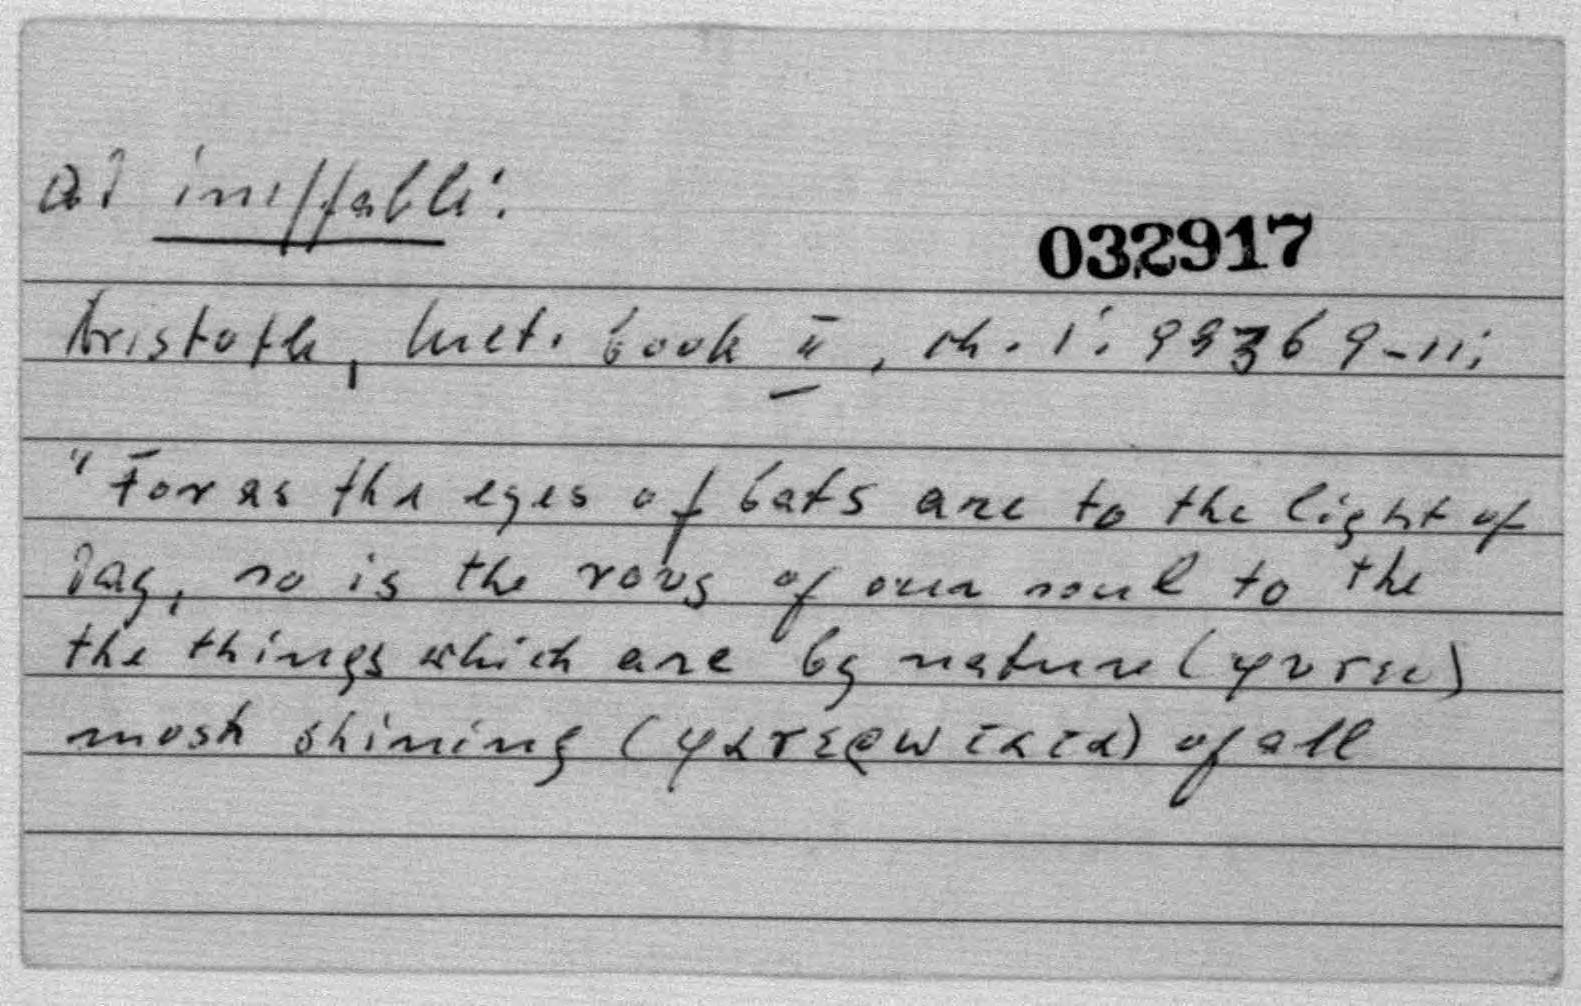 ad ineffable:
032917
Aristotle, Met. book II, ch. 1: 993b 9-11:
"For as the eyes of bats are to the light of
day, so is the νους of our soul to the
the things which are by nature (φυσει)
most shining (φανερωτατα) of all